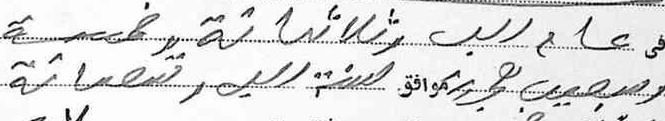 في عام الف وثلاثمائة وخمسة
وسبعين هجرية موافق لسنة الف وتسعمائة